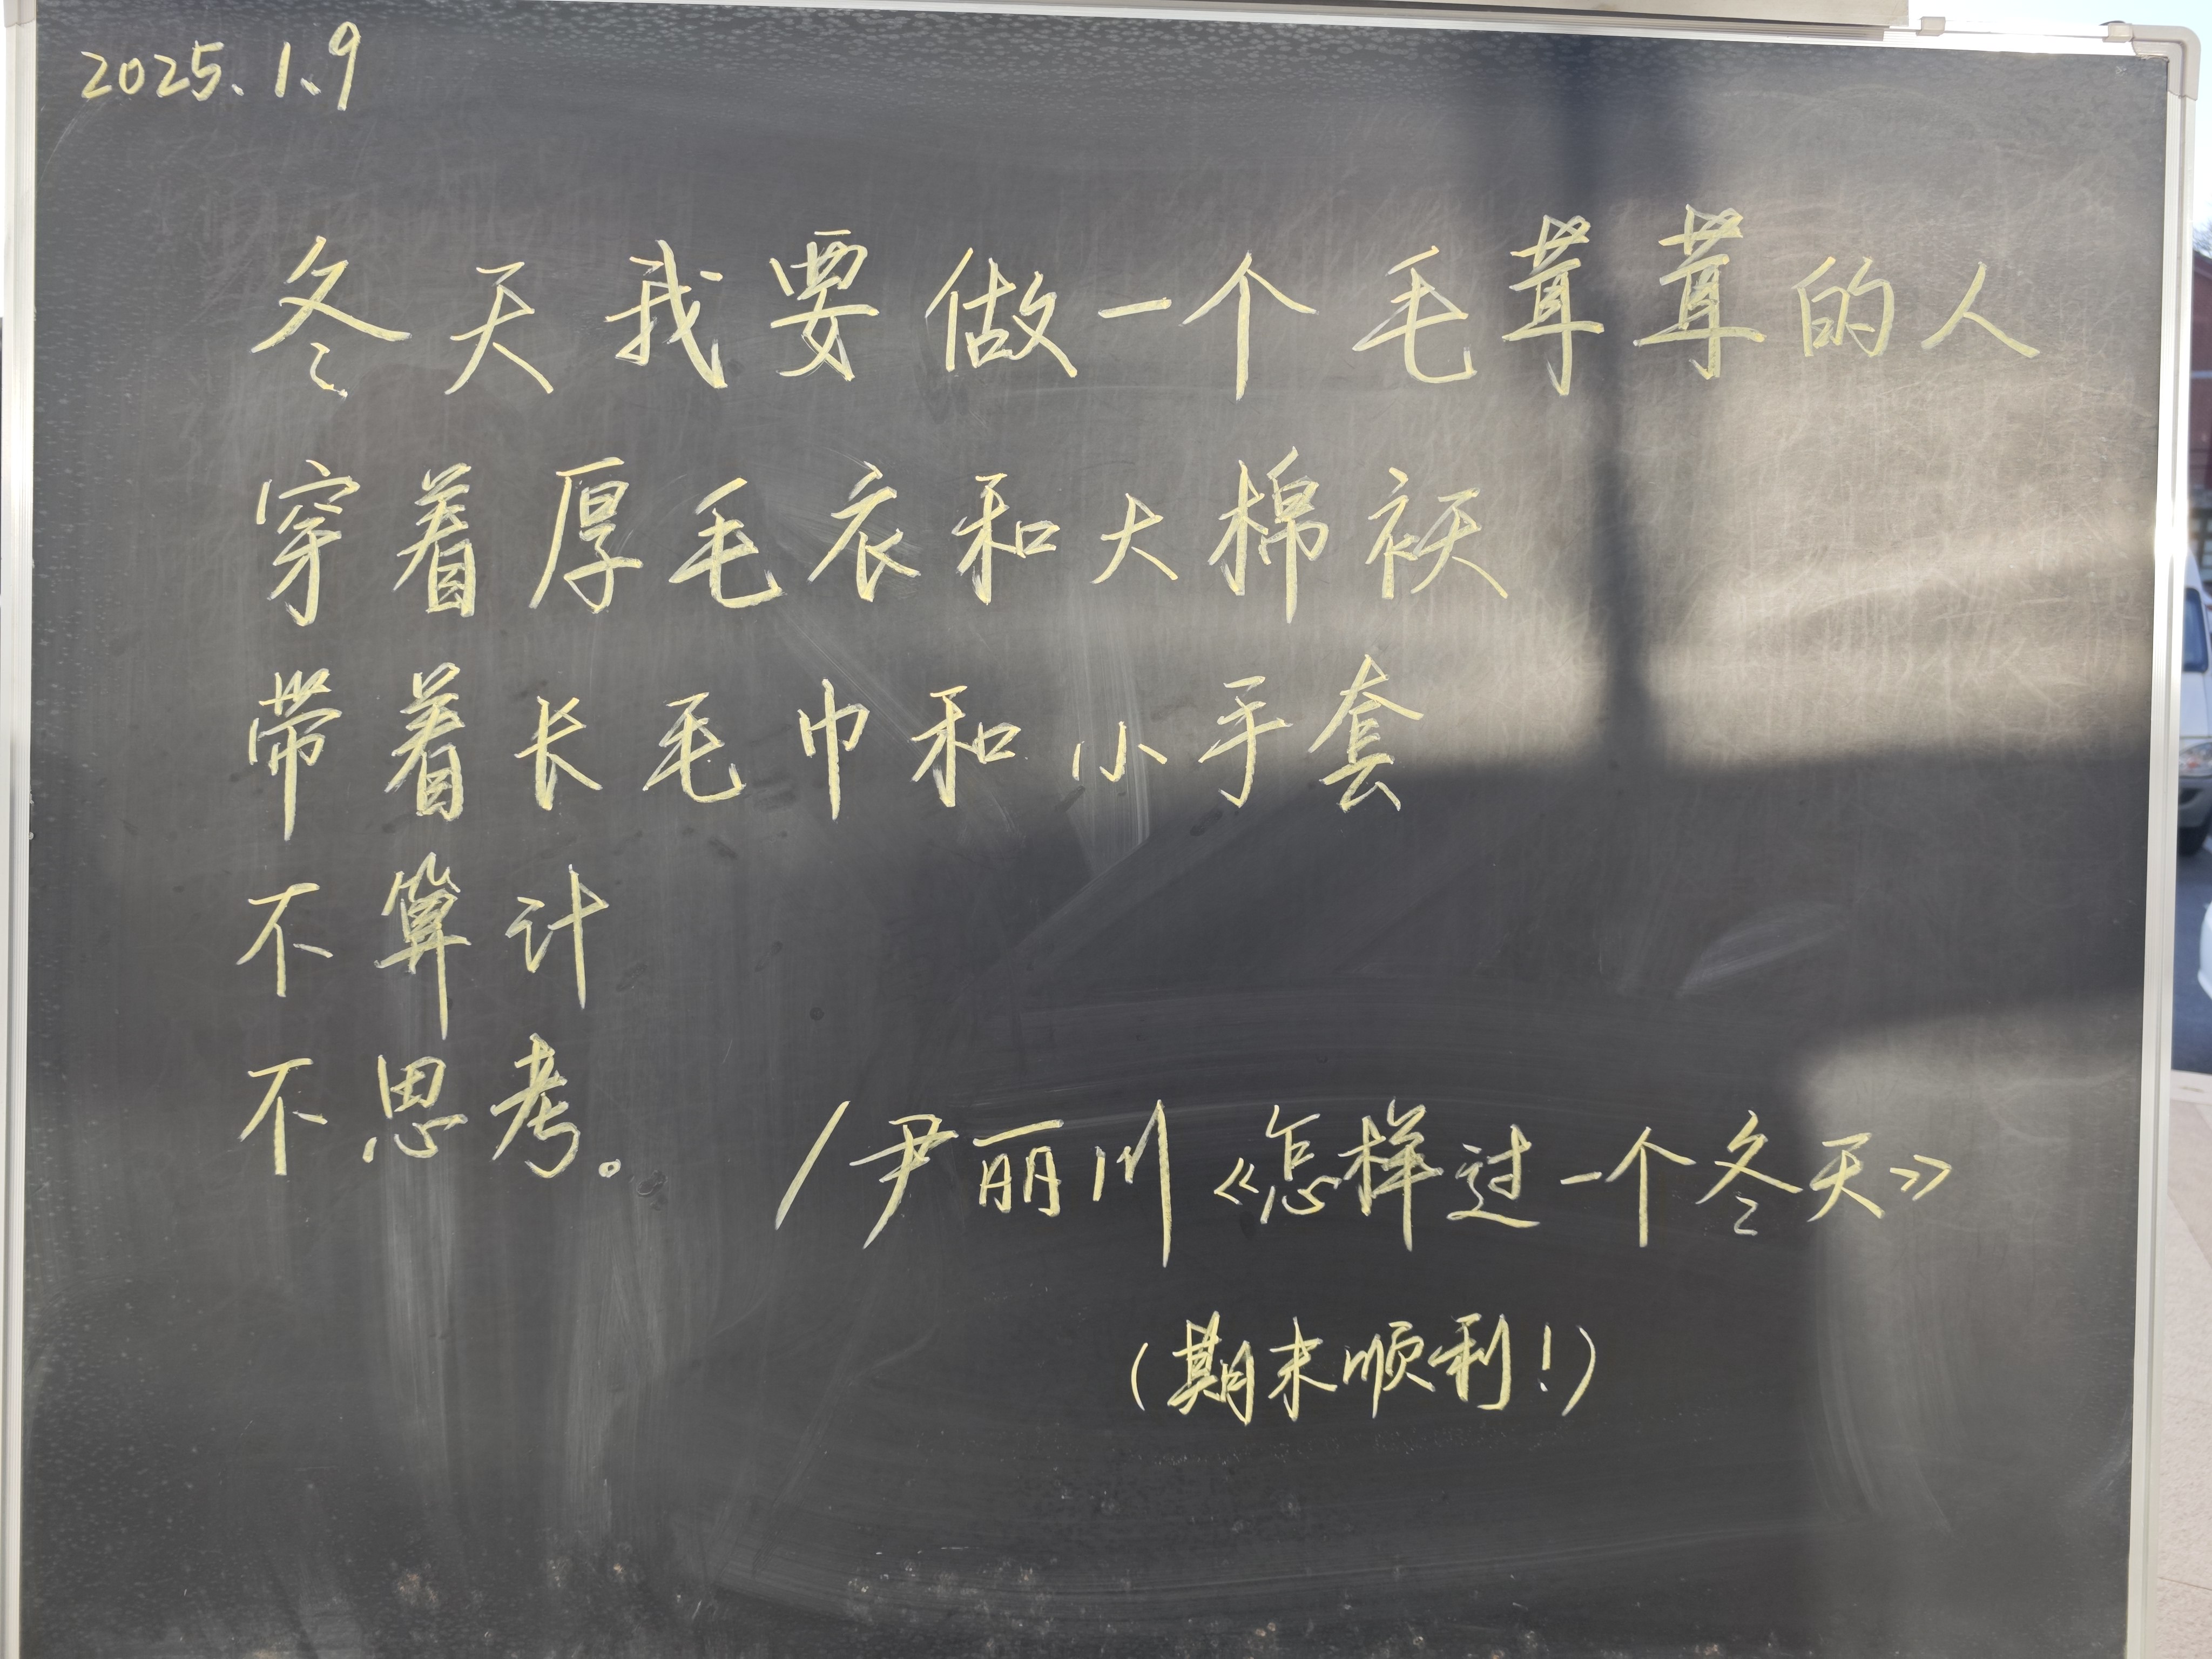 2025.1.9
冬天我要做一个毛茸茸的人
穿着厚毛衣和大棉袄
带着长毛巾和小手套
不算计
不思考。
/尹丽川《怎样过一个冬天》
(期末顺利!)